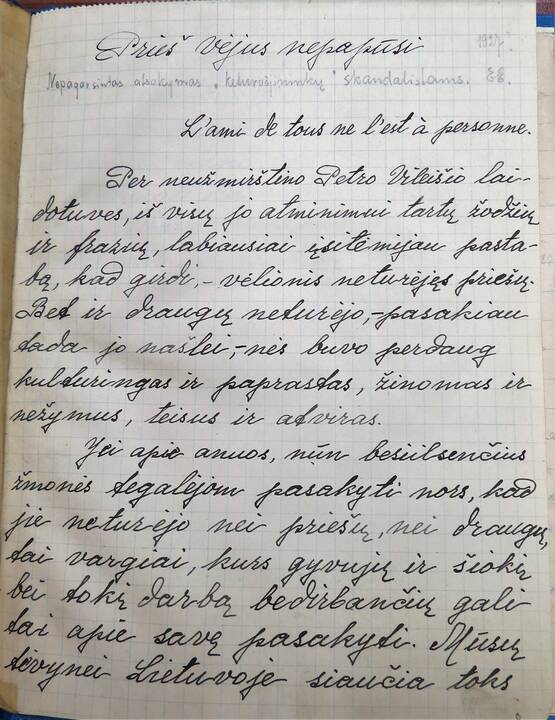 Prieš vėjus nepapūsi
1927
Nepagarsintas atsakymas „keturšininkų" skandalistams.
L'ami de tous ne l'est à personne.
Per neužmirštino Petro Vileišio lai-
dotuves, iš visų jo atminimui tartų žodžių
ir frazių, labiausiai įsitėmijau pasta-
bą, kad girdi, – vėlionis neturėjęs priešų.
Bet ir draugų neturėjo, – pasakiau
tada jo našlei, – nės buvo perdaug
kulturingas ir paprastas, žinomas ir
nežymus, teisus ir atviras.
Jei apie anuos, nūn besiilsenčius
žmonės tegalėjom pasakyti nors, kad
jie neturėjo nei priešų, nei draugų,
tai vargiai, kurs gyvųjų ir šiokį
bei tokį darbą bedirbančių gali
tai apie savę pasakyti. Mūsų
tėvynei Lietuvoje siaučia toks